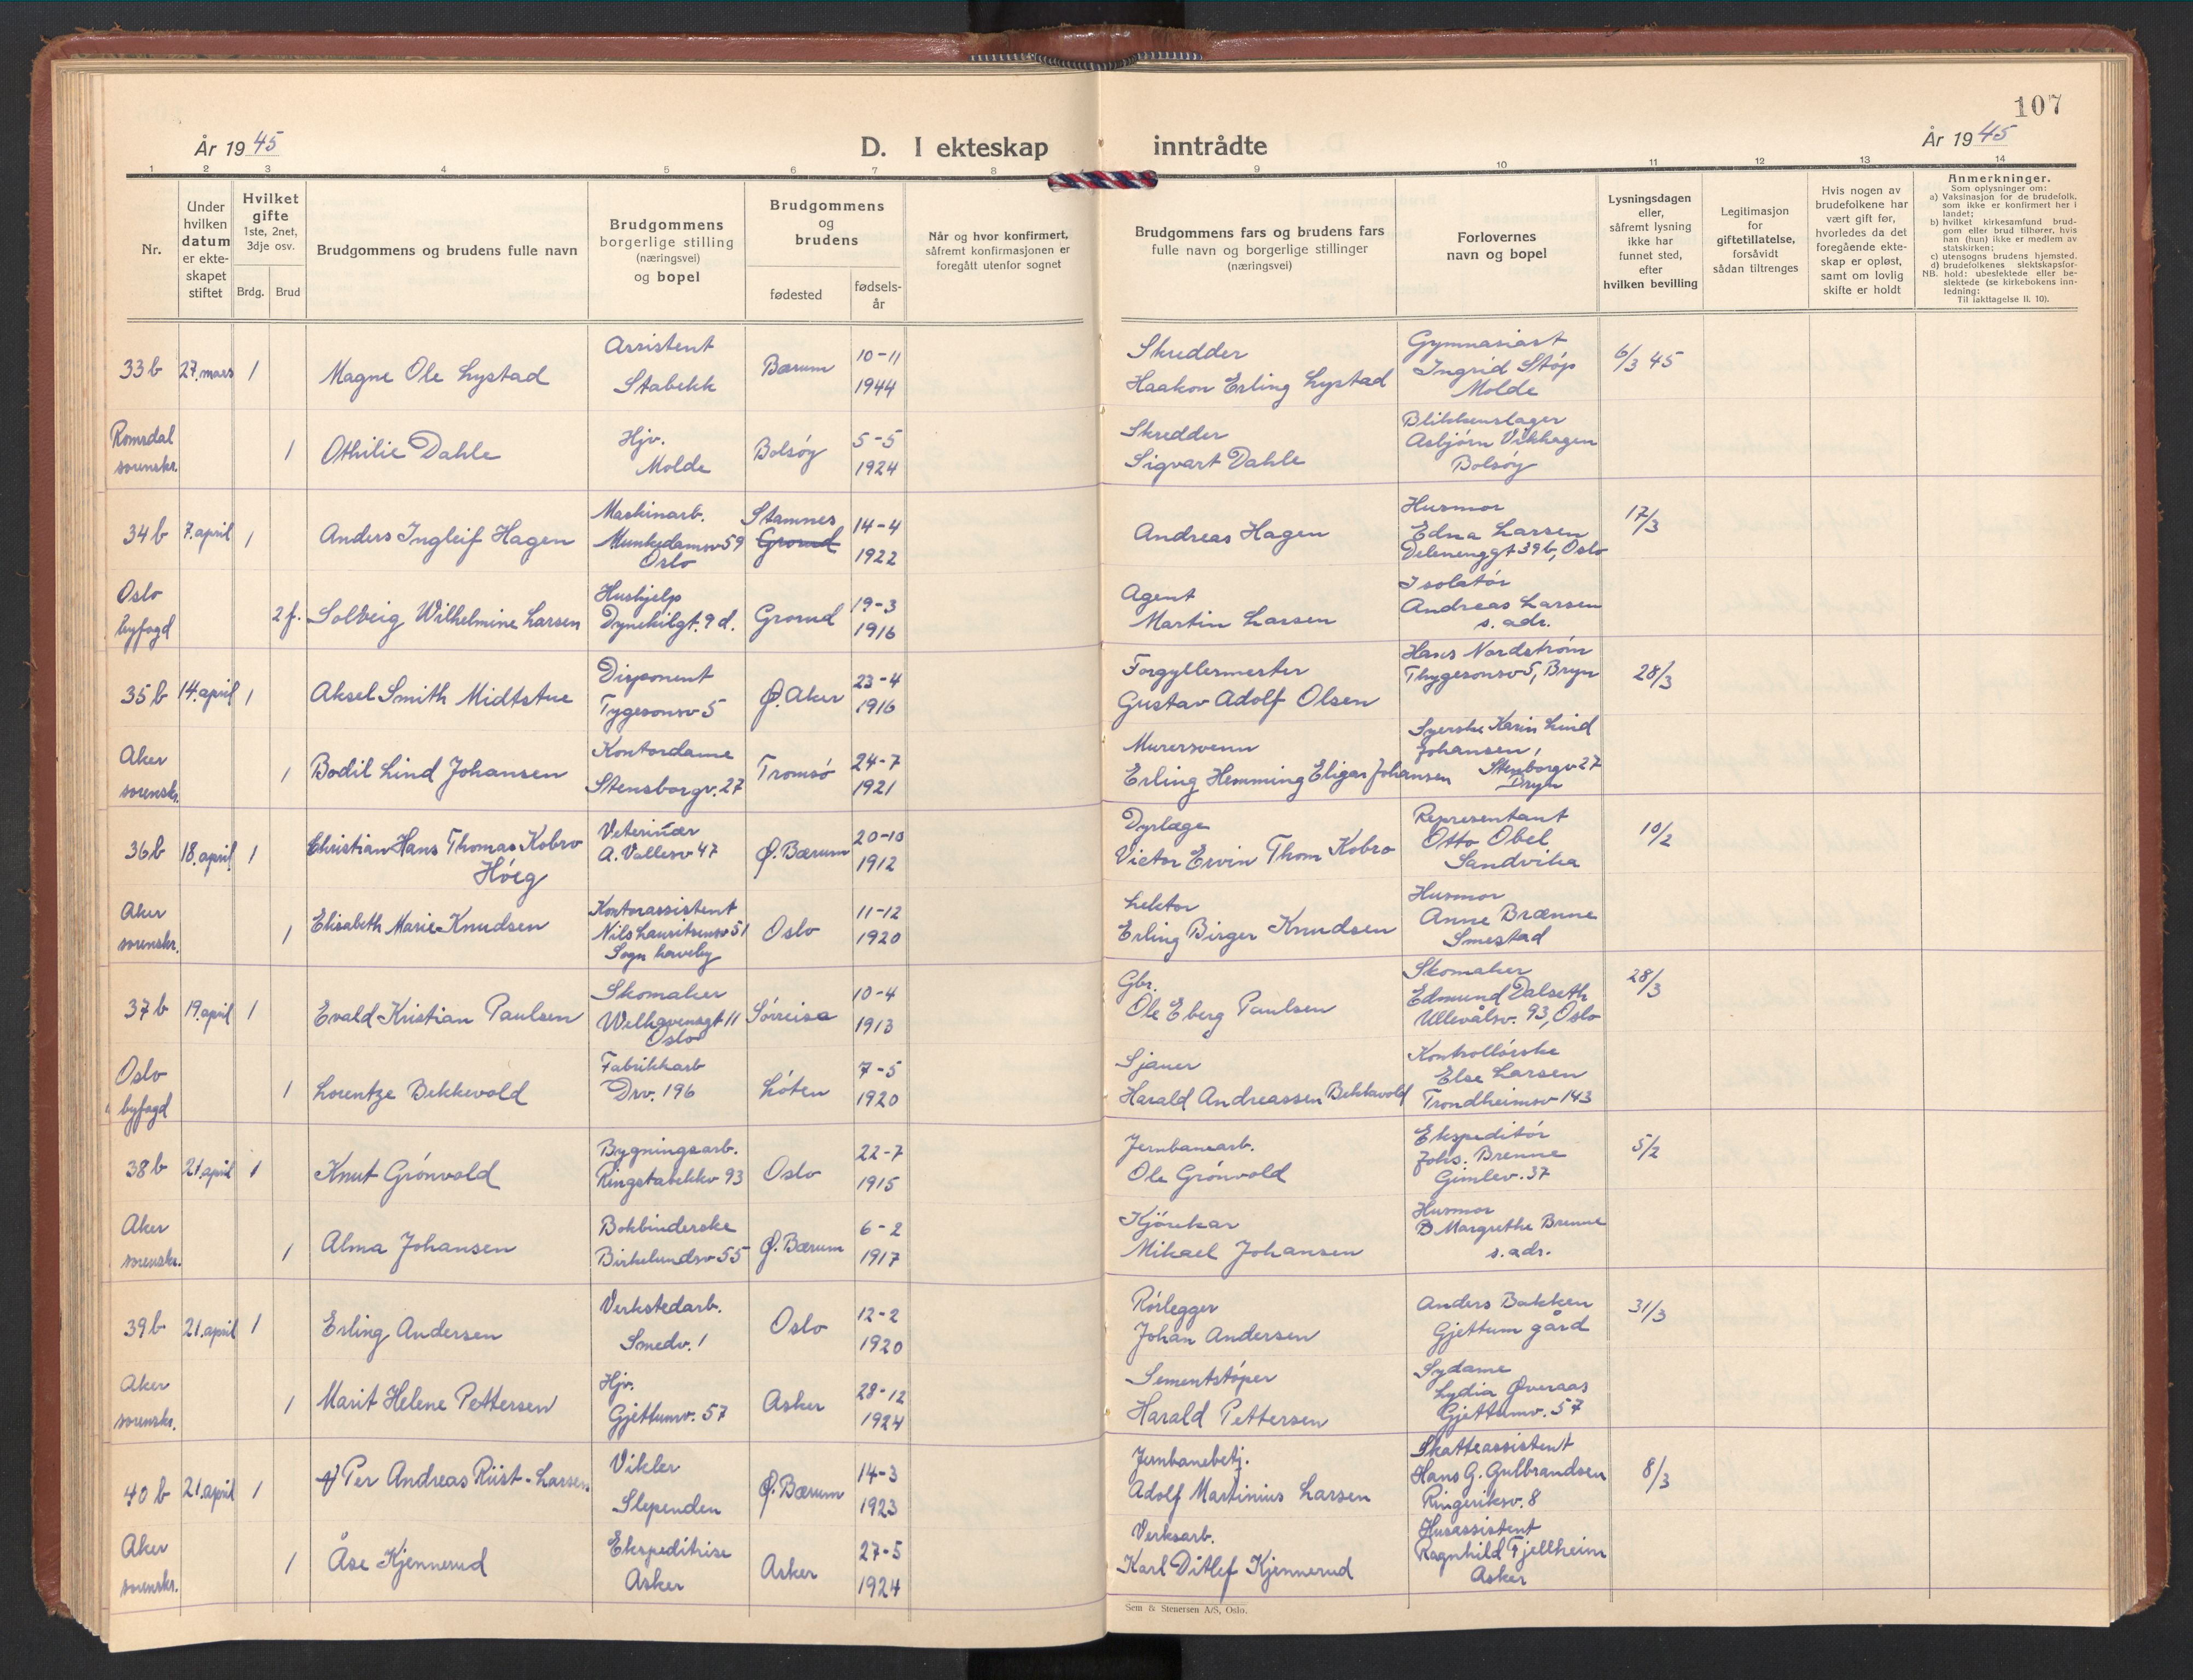 107
År 1945
D. I ekteskap inntrådte
År 1945
1 2 3 4 5 6 7 8 9 10 11 12 13 14
Nr.
Under
hvilken
datum
er ekte-
skapet
stiftet
Hvilket
gifte
1ste, 2net,
3dje osv.
Brdg.
Brud
Brudgommens og brudens fulle navn
Brudgommens
borgerlige stilling
(næringsvei)
og bopel
Brudgommens
og
brudens
fødested
fødsels-
år
Når og hvor konfirmert,
såfremt konfirmasjonen er
foregått utenfor sognet
Brudgommens fars og brudens fars
fulle navn og borgerlige stillinger
(næringsvei)
Forlovernes
navn og bopel
Lysningsdagen
eller,
såfremt lysning
ikke har
funnet sted,
efter
hvilken bevilling
Legitimasjon
for
giftetillatelse,
forsåvidt
sådan tiltrenges
Hvis nogen av
brudefolkene har
vært gift før,
hvorledes da det
foregående ekte-
skap er opløst,
samt om lovlig
skifte er holdt
Anmerkninger.
Som oplysninger om:
a) Vaksinasjon for de brudefolk,
som ikke er konfirmert her i
landet;
b) hvilket kirkesamfund brud-
gom eller brud tilhører, hvis
han (hun) ikke er medlem av
statskirken;
c) utensogns brudens hjemsted.
d) brudefolkenes slektskapsfor-
NB. hold: ubeslektede eller be-
slektede (se kirkebokens inn-
ledning:
Til iakttagelse II. 10).
33b 27. mars 1
Magne Ole Lystad
Assistent
Stabekk
Bærum
10-11
1944
Skredder
Haakon Erling Lystad
Gymnasiast
Ingrid Støp
Molde
6/3 45
Romsdal
sorenskr.
1
Othilie Dahle
Hjv.
Molde
Bolsøy
5-5
1924
Skredder
Sigvart Dahle
Blikkenslager
Asbjørn Vikhagen
Bolsøy
34b 7. april 1
Anders Ingleif Hagen
Maskinarb.
Munkedamsv 59
Oslo
Stamnes
Grorud
14-4
1922
Andreas Hagen
Husmor
Edna Larsen
Delenenggt 39b, Oslo
17/3
Oslo
byfogd
2 f.
Solveig Wilhelmine Larsen
Hushjelp
Dynekilgt. 9 d.
Grorud
19-3
1916
Agent
Martin Larsen
Isolatør
Andreas Larsen
s. adr.
35b 14. april 1
Aksel Smith Midtstue
Disponent
Tygesonsv 5
Ø. Aker
23-4
1916
Forgyllermester
Gustav Adolf Olsen
Hans Nordstrøm
Thygesonsv 5, Bryn
28/3
Aker
sorenskr.
1
Bodil Lind Johansen
Kontordame
Stensborgv. 27
Tromsø
24-7
1921
Murersvenn
Erling Hemming Eligar Johansen
Syerske Karin Lind
Johansen,
Stenborgv 27
Bryn
36b 18. april 1
Christian Hans Thomas Kobro
Høeg
Veterinær
A. Vallesv 47
Ø. Bærum
20-10
1912
Dyrlæge
Victor Ervin Thom Kobro
Representant
Otto Obel
Sandvika
10/2
Aker
sorenskr.
1
Elisabeth Marie Knudsen
Kontorassistent
Nils Lauritsensv 51
Sogn haveby
Oslo
11-12
1920
Lektor
Erling Birger Knudsen
Husmor
Anne Brænne
Smestad
37b 19. april 1
Evald Kristian Paulsen
Skomaker
Welhavensgt 11
Oslo
Sørreisa
10-4
1913
Gbr.
Ole Eberg Paulsen
Skomaker
Edmund Dalseth
Ullevålsv. 93, Oslo
28/3
Oslo
byfogd
1
Lorentze Bekkevold
Fabrikkarb
Drv. 196
Løten
7-5
1920
Sjauer
Harald Andreassen Bekkevold
Kontrollørske
Else Larsen
Trondheimsv 143
38b 21. april 1
Knut Grønvold
Bygningsarb.
Ringstabekkv 93
Oslo
22-7
1915
Jernbanearb.
Ole Grønvold
Ekspeditør
Johs. Brenne
Gimlev. 37
5/2
Aker
sorenskr.
1
Alma Johansen
Bokbinderske
Birkelundsv 55
Ø. Bærum
6-2
1917
Kjørekar
Mikael Johansen
Husmor
B Margrethe Brenne
s. adr.
39b 21. april 1
Erling Andersen
Verkstedarb.
Smedv. 1
Oslo
12-2
1920
Rørlegger
Johan Andersen
Anders Bakken
Gjettum gård
31/3
Aker
sorenskr.
1
Marit Helene Pettersen
Hjv.
Gjettumv. 57
Asker
28-12
1924
Sementstøper
Harald Pettersen
Sydame
Lydia Øveraas
Gjettumv. 57
40b 21. april 1
Per Andreas Riist-Larsen
Vikler
Slependen
Ø. Bærum
14-3
1923
Jernbanebetj.
Adolf Martinius Larsen
Skatteassistent
Hans G. Gulbrandsen
Ringeriksv. 8
8/3
Aker
sorenskr.
1
Åse Kjennerud
Ekspeditrise
Asker
Asker
27-5
1924
Verksarb.
Karl Ditlef Kjennerud
Husassistent
Ragnhild Fjellheim
Asker
Sem & Stenersen A/S, Oslo.